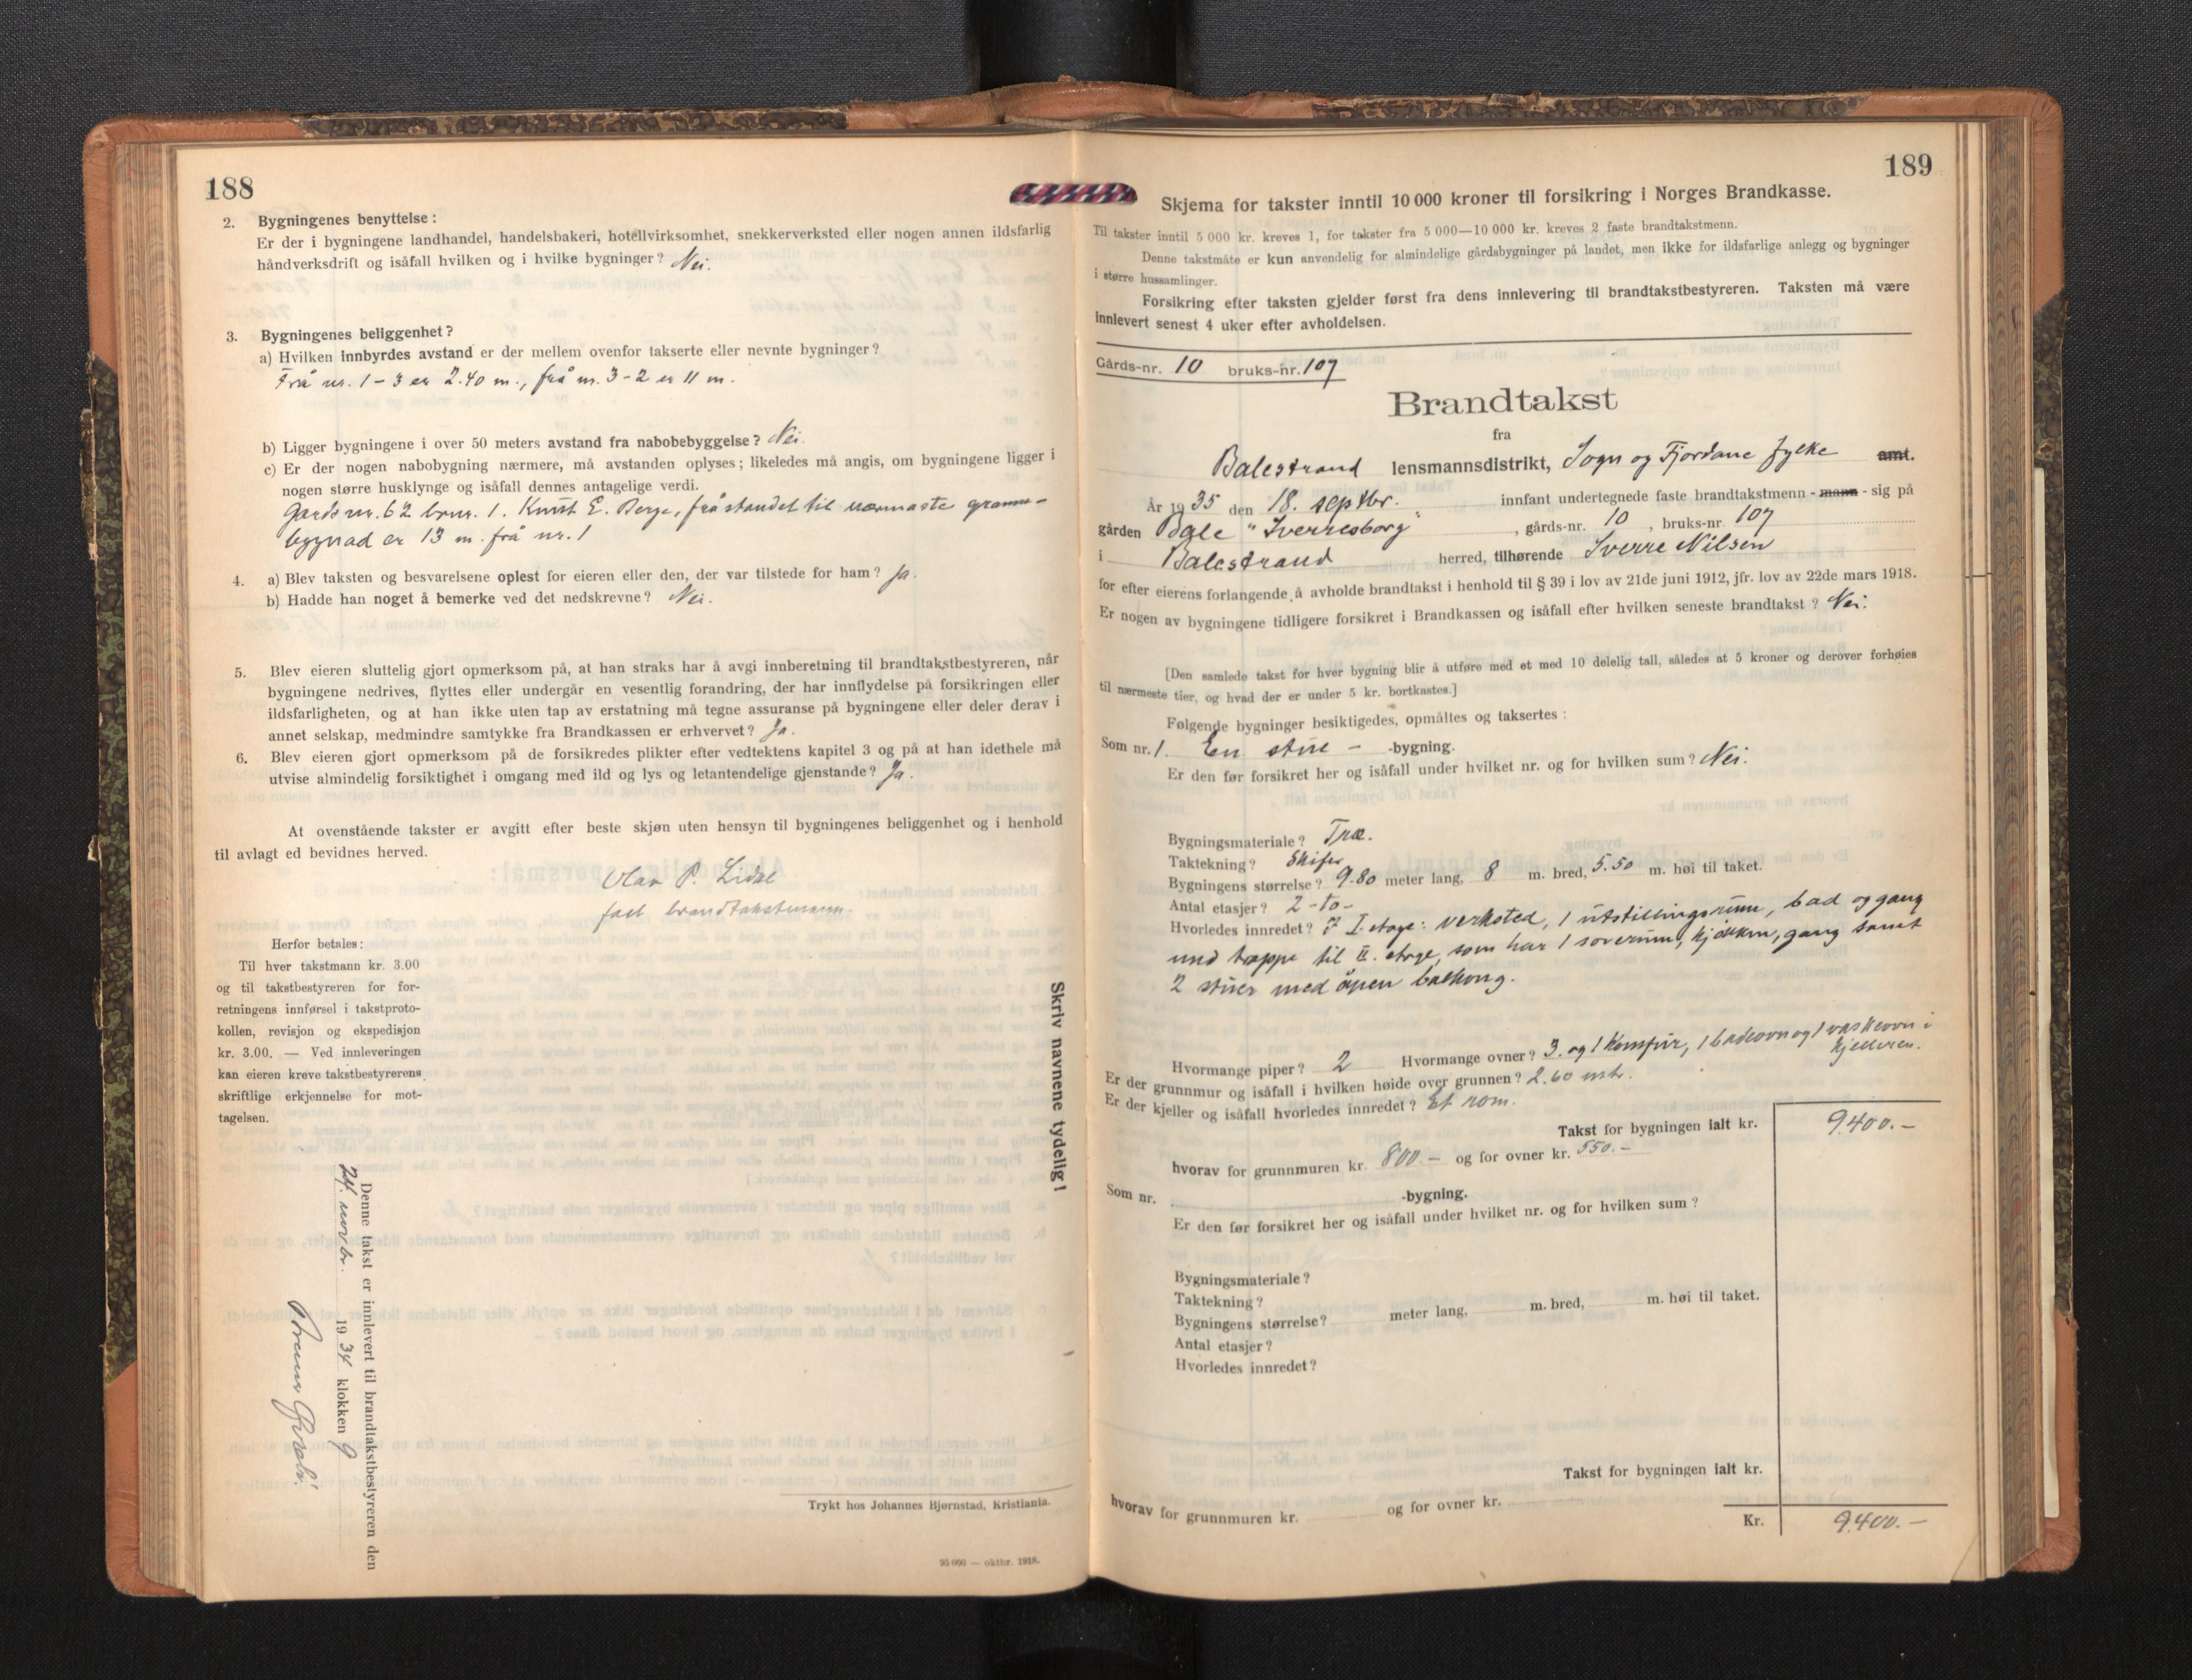 188
2. Bygningenes benyttelse:
Er der i bygningene landhandel, handelsbakeri, hotellvirksomhet, snekkerverksted eller nogen annen ildsfarlig
håndverksdrift og isåfall hvilken og i hvilke bygninger? Nei.
3. Bygningenes beliggenhet?
a) Hvilken innbyrdes avstand er der mellem ovenfor takserte eller nevnte bygninger?
Frå nr. 1-3 er 2.40 m., frå nr. 3-2 er 11 m.
b) Ligger bygningene i over 50 meters avstand fra nabobebyggelse? Nei.
c) Er der nogen nabobygning nærmere, må avstanden oplyses; likeledes må angis, om bygningene ligger i
nogen større husklynge og isåfall dennes antagelige verdi.
Gards nr. 62 brnr. 1. Knut E. Berge, fråstandet til nærmaste granne-
bygnad er 13 m. frå nr. 1
4. a) Blev taksten og besvarelsene oplest for eieren eller den, der var tilstede for ham? Ja.
b) Hadde han noget å bemerke ved det nedskrevne? Nei.
5. Blev eieren sluttelig gjort opmerksom på, at han straks har å avgi innberetning til brandtakstbestyreren, når
bygningene nedrives, flyttes eller undergår en vesentlig forandring, der har innflydelse på forsikringen eller
ildsfarligheten, og at han ikke uten tap av erstatning må tegne assuranse på bygningene eller deler derav i
annet selskap, medmindre samtykke fra Brandkassen er erhvervet? Ja.
6. Blev eieren gjort opmerksom på de forsikredes plikter efter vedtektens kapitel 3 og på at han idethele må
utvise almindelig forsiktighet i omgang med ild og lys og letantendelige gjenstande? Ja.
At ovenstående takster er avgitt efter beste skjøn uten hensyn til bygningenes beliggenhet og i henhold
til avlagt ed bevidnes herved.
Olav P. Lidal
fast brandtakstmann.
Herfor betales:
Til hver takstmann kr. 3.00
og til takstbestyreren for for-
retningens innførsel i takstproto-
kollen, revisjon og ekspedisjon
kr. 3.00. — Ved innleveringen
kan eieren kreve takstbestyrerens
skriftlige erkjennelse for mot-
tagelsen.
Skriv navnene tydelig!
Denne takst er innlevert til brandtakstbestyreren den
24. novbr. 1934 klokken 9
Trykt hos Johannes Bjørnstad, Kristiania.
95 000 — oktbr. 1918.
189
Skjema for takster inntil 10 000 kroner til forsikring i Norges Brandkasse.
Til takster inntil 5 000 kr. kreves 1, for takster fra 5 000—10 000 kr. kreves 2 faste brandtakstmenn.
Denne takstmåte er kun anvendelig for almindelige gårdsbygninger på landet, men ikke for ildsfarlige anlegg og bygninger
i større hussamlinger.
Forsikring efter taksten gjelder først fra dens innlevering til brandtakstbestyreren. Taksten må være
innlevert senest 4 uker efter avholdelsen.
Gårds-nr. 10 bruks-nr. 107
Brandtakst
fra
Balestrand lensmannsdistrikt, Sogn og Fjordane fylke amt.
År 1935 den 18. septbr. innfant undertegnede faste brandtakstmenn - mann - sig på
gården Bale "Sverresborg", gårds-nr. 10, bruks-nr. 107
i Balestrand herred, tilhørende Sverre Nilsen
for efter eierens forlangende å avholde brandtakst i henhold til § 39 i lov av 21de juni 1912, jfr. lov av 22de mars 1918.
Er nogen av bygningene tidligere forsikret i Brandkassen og isåfall efter hvilken seneste brandtakst? Nei.
[Den samlede takst for hver bygning blir å utføre med et med 10 delelig tall, således at 5 kroner og derover forhøies
til nærmeste tier, og hvad der er under 5 kr. bortkastes.]
Følgende bygninger besiktigedes, opmåltes og taksertes:
Som nr. 1. En stue - -bygning.
Er den før forsikret her og isåfall under hvilket nr. og for hvilken sum? Nei.
Bygningsmateriale? Træ.
Taktekning? Skifer
Bygningens størrelse? 9.80 meter lang, 8 m. bred, 5.50 m. høi til taket.
Antal etasjer? 2-to-
Hvorledes innredet? I I. etage: verksted, 1 utstillingsrum, bad og gang
und trappe til II. etage, som har 1 soverum, kjøkken, gang samt
2 stuer med åpen balkong.
Hvormange piper? 2 Hvormange ovner? 3. og 1 komfur, 1 badeovn og 1 vaskeovn i
kjelleren.
Er der grunnmur og isåfall i hvilken høide over grunnen? 2.60 mtr.
Er der kjeller og isåfall hvorledes innredet? Et rom.
Takst for bygningen ialt kr. 9.400.-
hvorav for grunnmuren kr. 800.- og for ovner kr. 550.-
Som nr. -bygning.
Er den før forsikret her og isåfall under hvilket nr. og for hvilken sum?
Bygningsmateriale?
Taktekning?
Bygningens størrelse? meter lang, m. bred, m. høi til taket.
Antal etasjer?
Hvorledes innredet?
Takst for bygningen ialt kr.
hvorav for grunnmuren kr. og for ovner kr.
Kr. 9.400.-